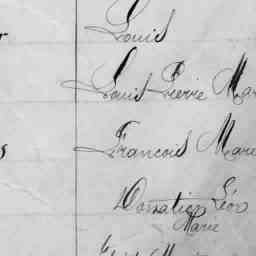 Louis
Louis Pierre Mar
François Marie
Donatien Léon
Marie